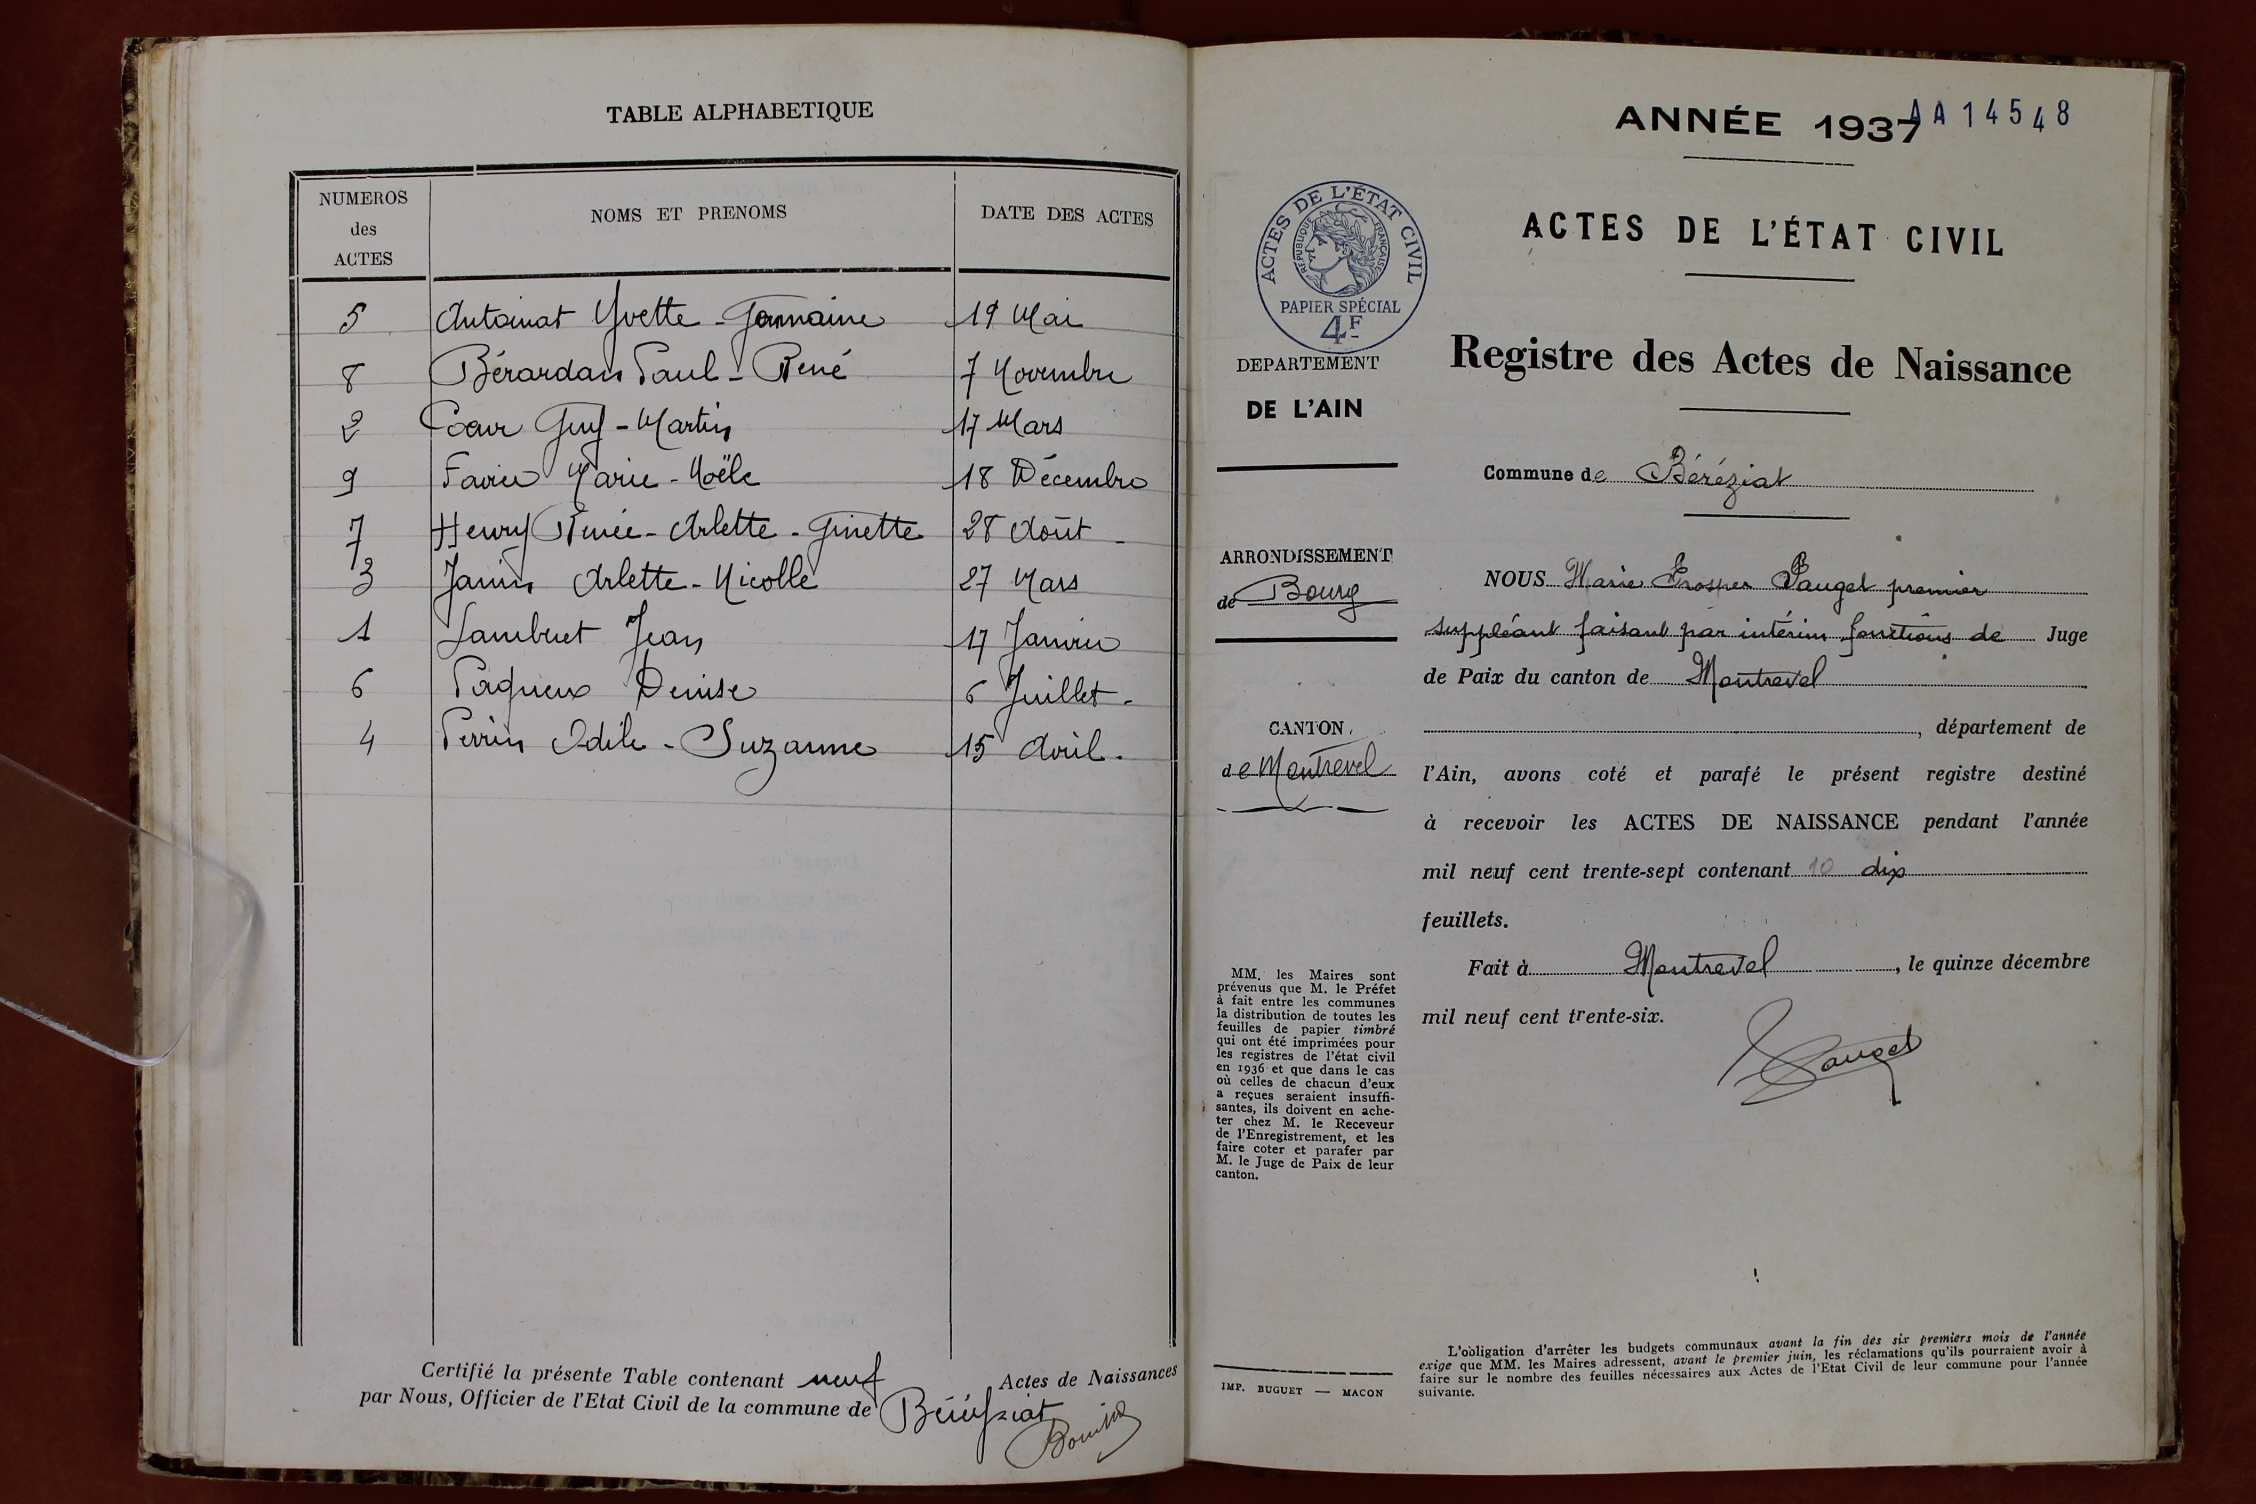 TABLE ALPHABETIQUE
NUMEROS
des
ACTES
NOMS ET PRENOMS
DATE DES ACTES
5 Antoinat Yvette - Germaine 19 Mai
8 Bérardan Paul - René 7 Novembre
2 Coeur Guy - Martin 17 Mars
9 Favier Marie - Noële 18 Décembre
7 Henry Renée - Arlette - Ginette 28 Août
3 Janin Arlette - Nicolle 27 Mars
1 Lambert Jean 17 Janvier
6 Paqueux Denise 6 Juillet -
4 Perrin Odile - Suzanne 15 Avril -
Certifié la présente Table contenant neuf Actes de Naissances
par Nous, Officier de l'Etat Civil de la commune de Béréziat
ANNÉE 1937
AA 14548
ACTES DE L'ÉTAT CIVIL
RÉPUBLIQUE FRANÇAISE
PAPIER SPÉCIAL
4F
DEPARTEMENT
DE L'AIN
ARRONDISSEMENT
de Bourg
CANTON
de Montrevel
MM. les Maires sont
prévenus que M. le Préfet
à fait entre les communes
la distribution de toutes les
feuilles de papier timbré
qui ont été imprimées pour
les registres de l'état civil
en 1936 et que dans le cas
où celles de chacun d'eux
a reçues seraient insuffi-
santes, ils doivent en ache-
ter chez M. le Receveur
de l'Enregistrement, et les
faire coter et parafer par
M. le Juge de Paix de leur
canton.
IMP. BUGUET — MACON
ACTES DE L'ÉTAT CIVIL
Registre des Actes de Naissance
Commune de Béréziat
NOUS Marie Prosper Pauget premier
suppléant faisant par intérim fonctions de Juge
de Paix du canton de Montrevel
, département de
l'Ain, avons coté et parafé le présent registre destiné
à recevoir les ACTES DE NAISSANCE pendant l'année
mil neuf cent trente-sept contenant 10 dix
feuillets.
Fait à Montrevel, le quinze décembre
mil neuf cent trente-six.
Pauget
L'obligation d'arrêter les budgets communaux avant la fin des six premiers mois de l'année
exige que MM. les Maires adressent, avant le premier juin, les réclamations qu'ils pourraient avoir à
faire sur le nombre des feuilles nécessaires aux Actes de l'Etat Civil de leur commune pour l'année
suivante.